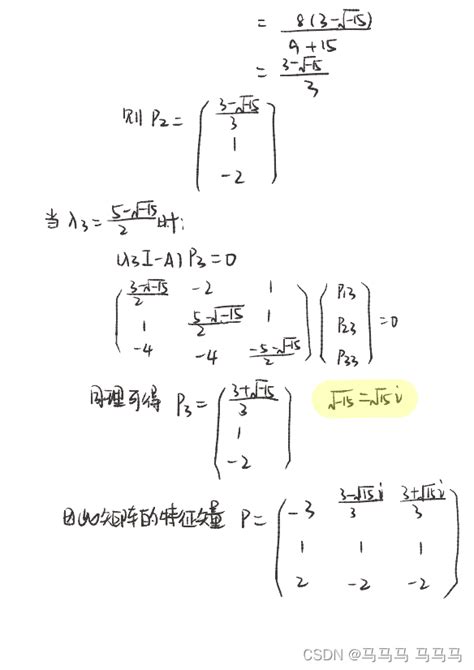 = 8(3-√-15) / 9+15
= 3-√-15 / 3
则 P2 = ( 3-√-15 / 3
1
-2 )
当 λ3 = 5-√-15 / 2 时:
(λ3I-A)P3=0
( 3-√-15 / 2  -2  1 ) ( P13
1  5-√-15 / 2  1  P23 =0
-4  -4  -5-√-15 / 2 ) P33 )
同理可得 P3 = ( 3+√-15 / 3  √-15=√15 i
1
-2 )
因此矩阵的特征矢量 P= ( -3  3-√15i / 3  3+√15i / 3
1  1  1
2  -2  -2 )
CSDN @马马马 马马马